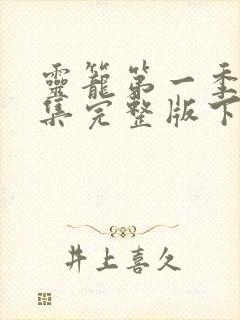 靈籠第一季
集完整版下
井上喜久